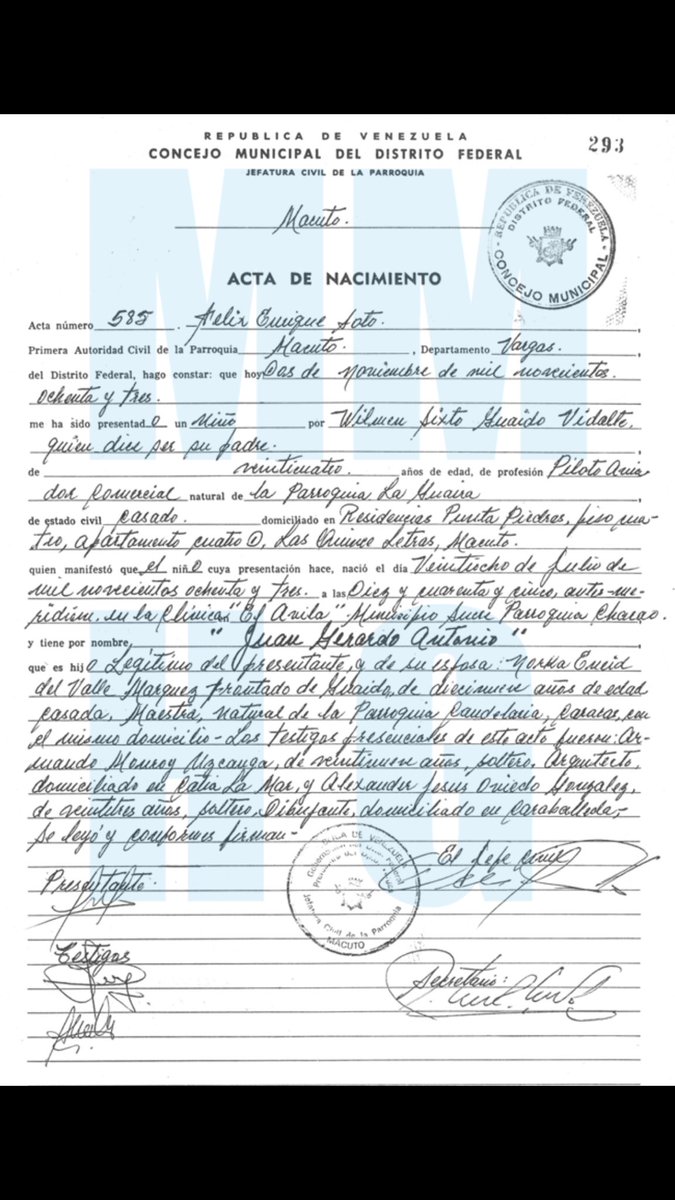 REPUBLICA DE VENEZUELA
CONCEJO MUNICIPAL DEL DISTRITO FEDERAL
JEFATURA CIVIL DE LA PARROQUIA
293
Macuto.
REPUBLICA DE VENEZUELA
DISTRITO FEDERAL
CONCEJO MUNICIPAL
ACTA DE NACIMIENTO
Acta número 585. Felix Enrique Soto.
Primera Autoridad Civil de la Parroquia Macuto. , Departamento Vargas.
del Distrito Federal, hago constar: que hoy Dos de Noviembre de mil novecientos
ochenta y tres.
me ha sido presentado un Niño por Wilmer Sixto Guaido Vidalte,
quien dice ser su padre.
de veinticuatro años de edad, de profesión Piloto Avia
dor Comercial natural de la Parroquia La Guaira
de estado civil casado. domiciliado en Residencias Punta Piedras, piso cua-
tro, apartamento cuatro D, Las Quince Letras, Macuto.
quien manifestó que el niño cuya presentación hace, nació el día Veintiocho de Julio de
mil novecientos ochenta y tres. a las Diez y cuarenta y cinco, antes-me-
ridium, en la Clínica "El Avila" Municipio Sucre Parroquia Chacao.
y tiene por nombre, "Juan Gerardo Antonio"
que es hijo Legítimo del presentante, y de su esposa: Norka Eneid
del Valle Marquez Frontado de Guaido, de diecinueve años de edad
casada, Maestra, natural de la Parroquia Candelaria, Caracas, con
el mismo domicilio - Los testigos presenciales de este acto fueron: Ar-
mando Monroy Uzcanga, de veintinueve años, soltero, Arquitecto,
domiciliado en Catia La Mar, y Alexander Jesus Oviedo Gonzalez,
de veintitres años, soltero, Dibujante, domiciliado en Caraballeda,-
Se leyó y conformes firman-
Presentante:
El Jefe Civil
Jefatura Civil de la Parroquia
MACUTO
Testigos
Secretario:
MM
HG